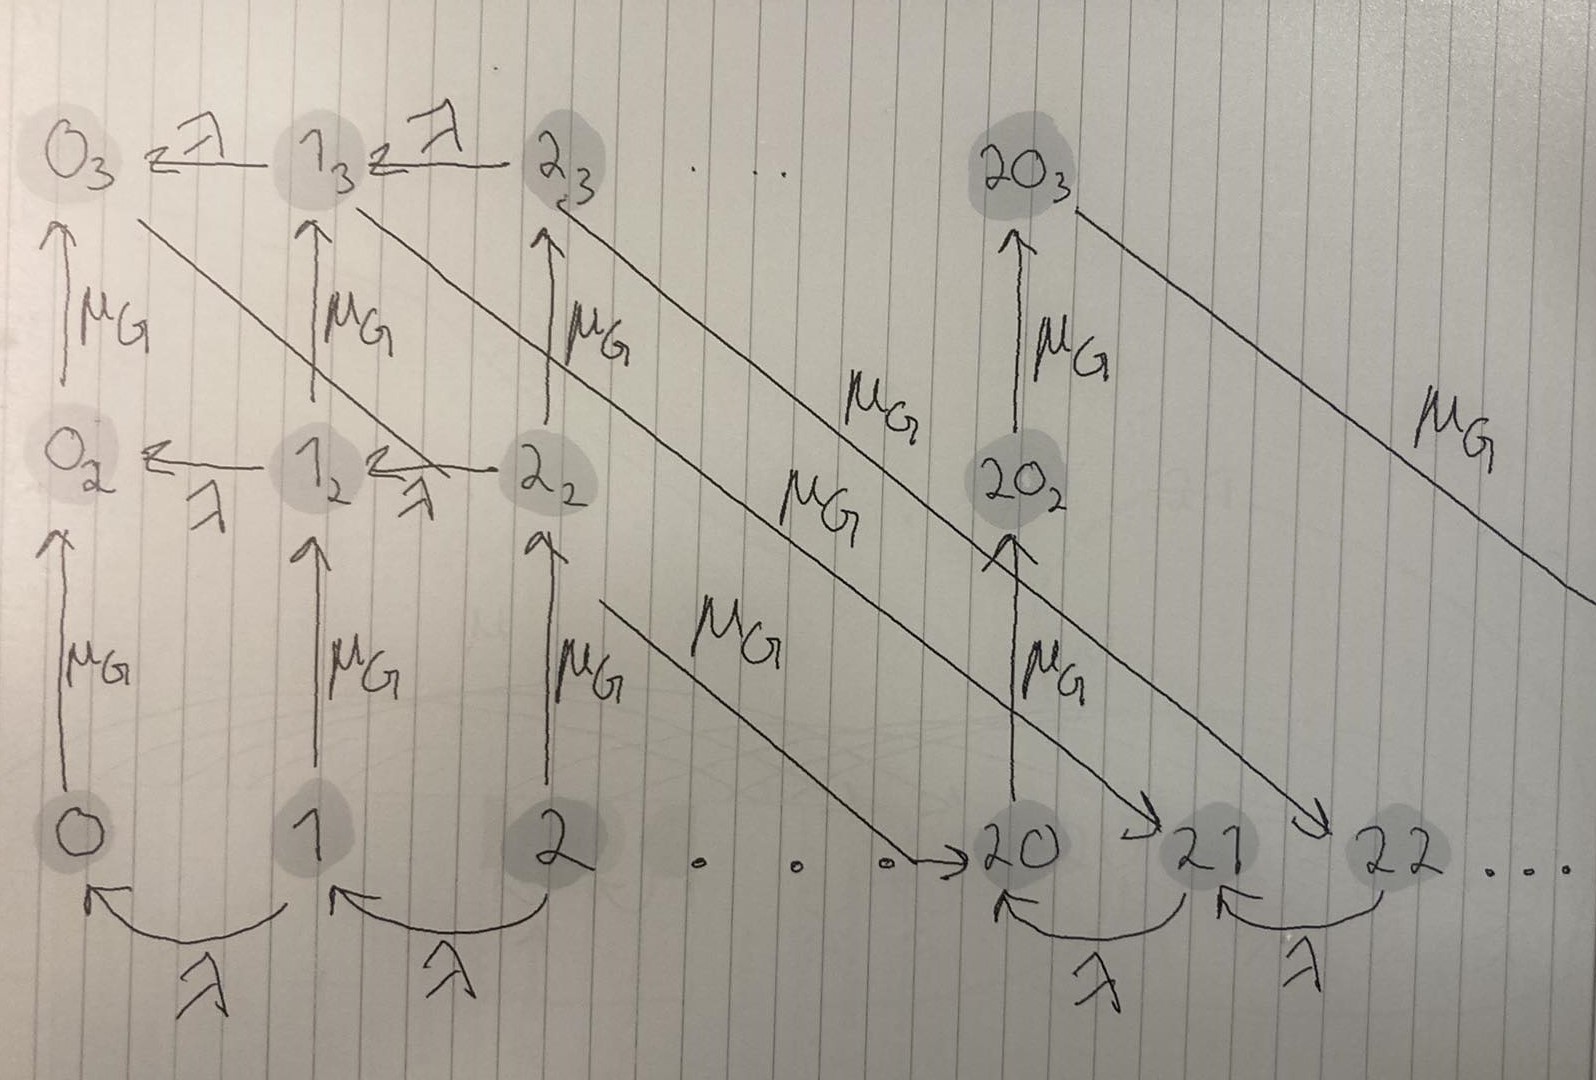 λ λ
0₃ 1₃ 2₃ ... 20₃
μG μG μG μG μG μG
0₂ 1₂ 2₂ 20₂
λ λ μG
μG μG μG μG μG
0 1 2 ... 20 21 22 ...
λ λ λ λ